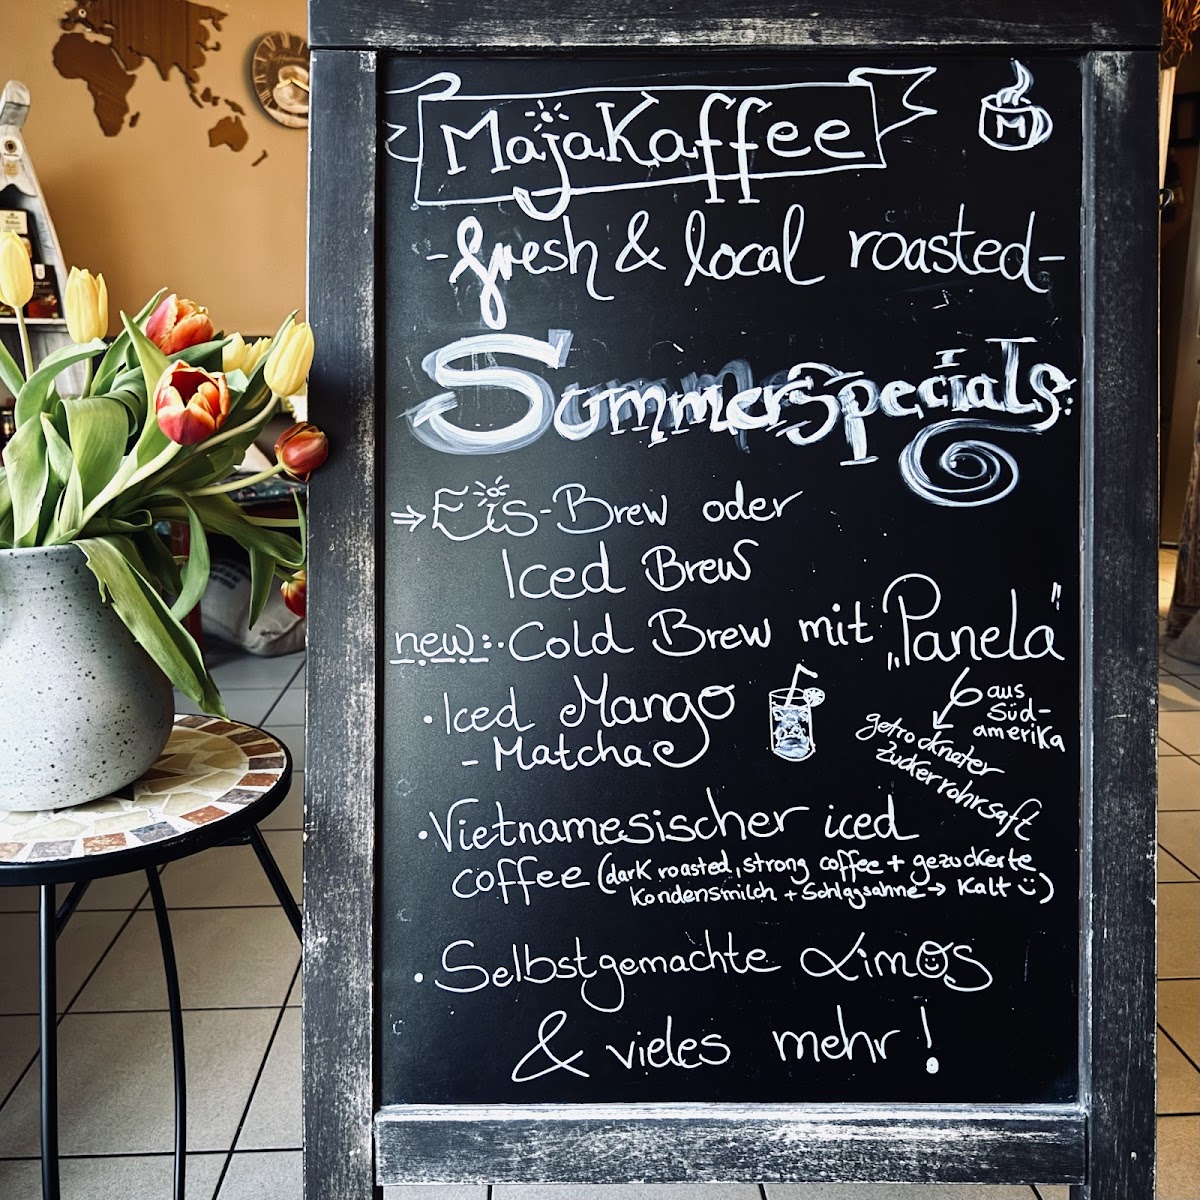 MajaKaffee
M
-fresh & local roasted-
SummerSpecials:
⇒ Eis-Brew oder
Iced Brew
new: · Cold Brew mit „Panela"
aus
Süd-
amerika
getrockneter
Zuckerrohrsaft
· Iced Mango
- Matcha
· Vietnamesischer iced
coffee (dark roasted, strong coffee + gezuckerte
Kondensmilch + Schlagsahne → Kalt ü)
· Selbstgemachte Limos
& vieles mehr!